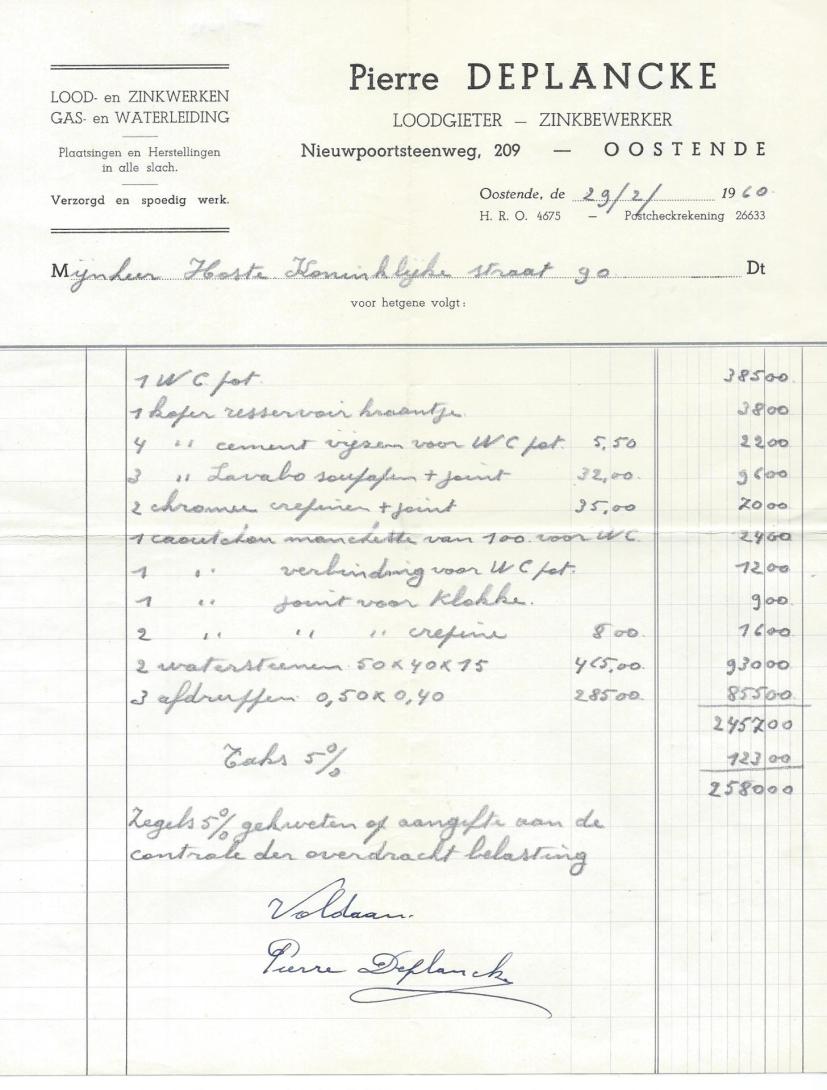 LOOD- en ZINKWERKEN
GAS- en WATERLEIDING
Plaatsingen en Herstellingen
in alle slach.
Verzorgd en spoedig werk.
Pierre DEPLANCKE
LOODGIETER — ZINKBEWERKER
Nieuwpoortsteenweg, 209 — OOSTENDE
Oostende, de 29/2/ 1960
H. R. O. 4675 — Postcheckrekening 26633
Mynheer Hoste Koninklijke straat 90 Dt
voor hetgene volgt :
1 WC pot. 38500
1 koper resservoir kraantje 3800
4 " cement vijzen voor WC pot. 5,50 2200
3 " Lavabo soupapen + joint 32,00. 9600
2 chromee crepinen + joint 35,00 7000
1 caoutchou manchette van 100 voor WC. 2400
1 " verbinding voor WC pot. 1200
1 " joint voor Klokke. 900
2 " " " crepine 800 1600
2 watersteenen 50 x 40 x 15 465,00. 93000
3 0,50 x 0,40 28500 85500
245700
Taks 5% 12300
258000
Zegels 5% gekweten op aangifte aan de
controle der overdracht belasting
Voldaan.
Pierre Deplancke